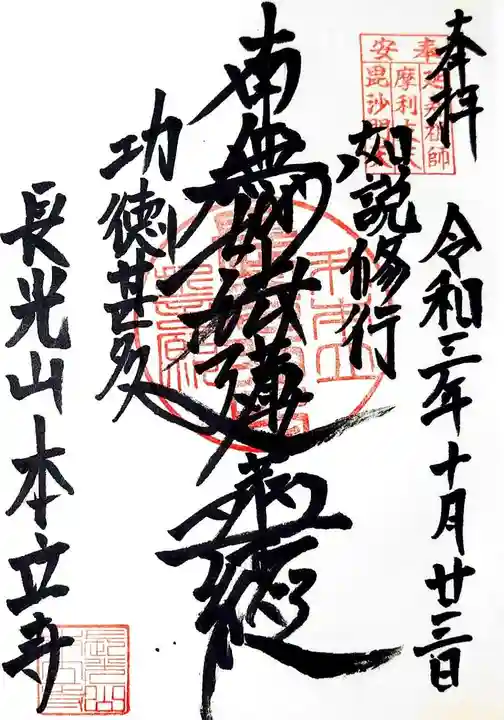 奉拝
令和三年十月廿三日
奉安
摩利支天
毘沙門天
如説修行
南無妙法蓮華経
功徳甚多
長光山本立寺